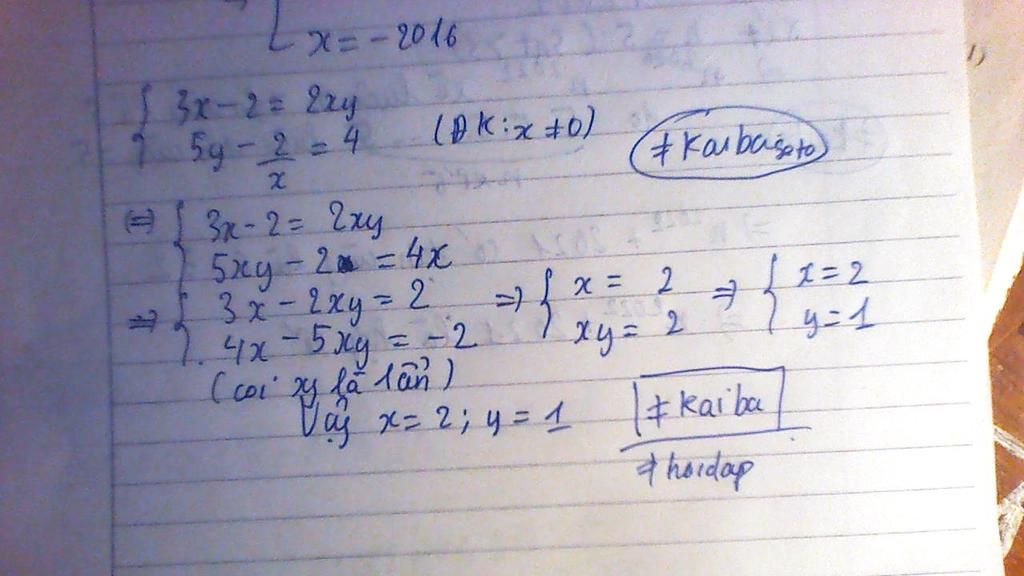 x = -2016
3x - 2 = 2xy
5y - 2/x = 4 (ĐK: x ≠ 0) ≠ Kaibasoto
⇔ 3x - 2 = 2xy
5xy - 2 = 4x
⇒ 3x - 2xy = 2 ⇒ x = 2 ⇒ x = 2
4x - 5xy = -2 xy = 2 y = 1
(coi xy là 1 ẩn)
Vậy x = 2; y = 1 ≠ kaiba
≠ hoidap